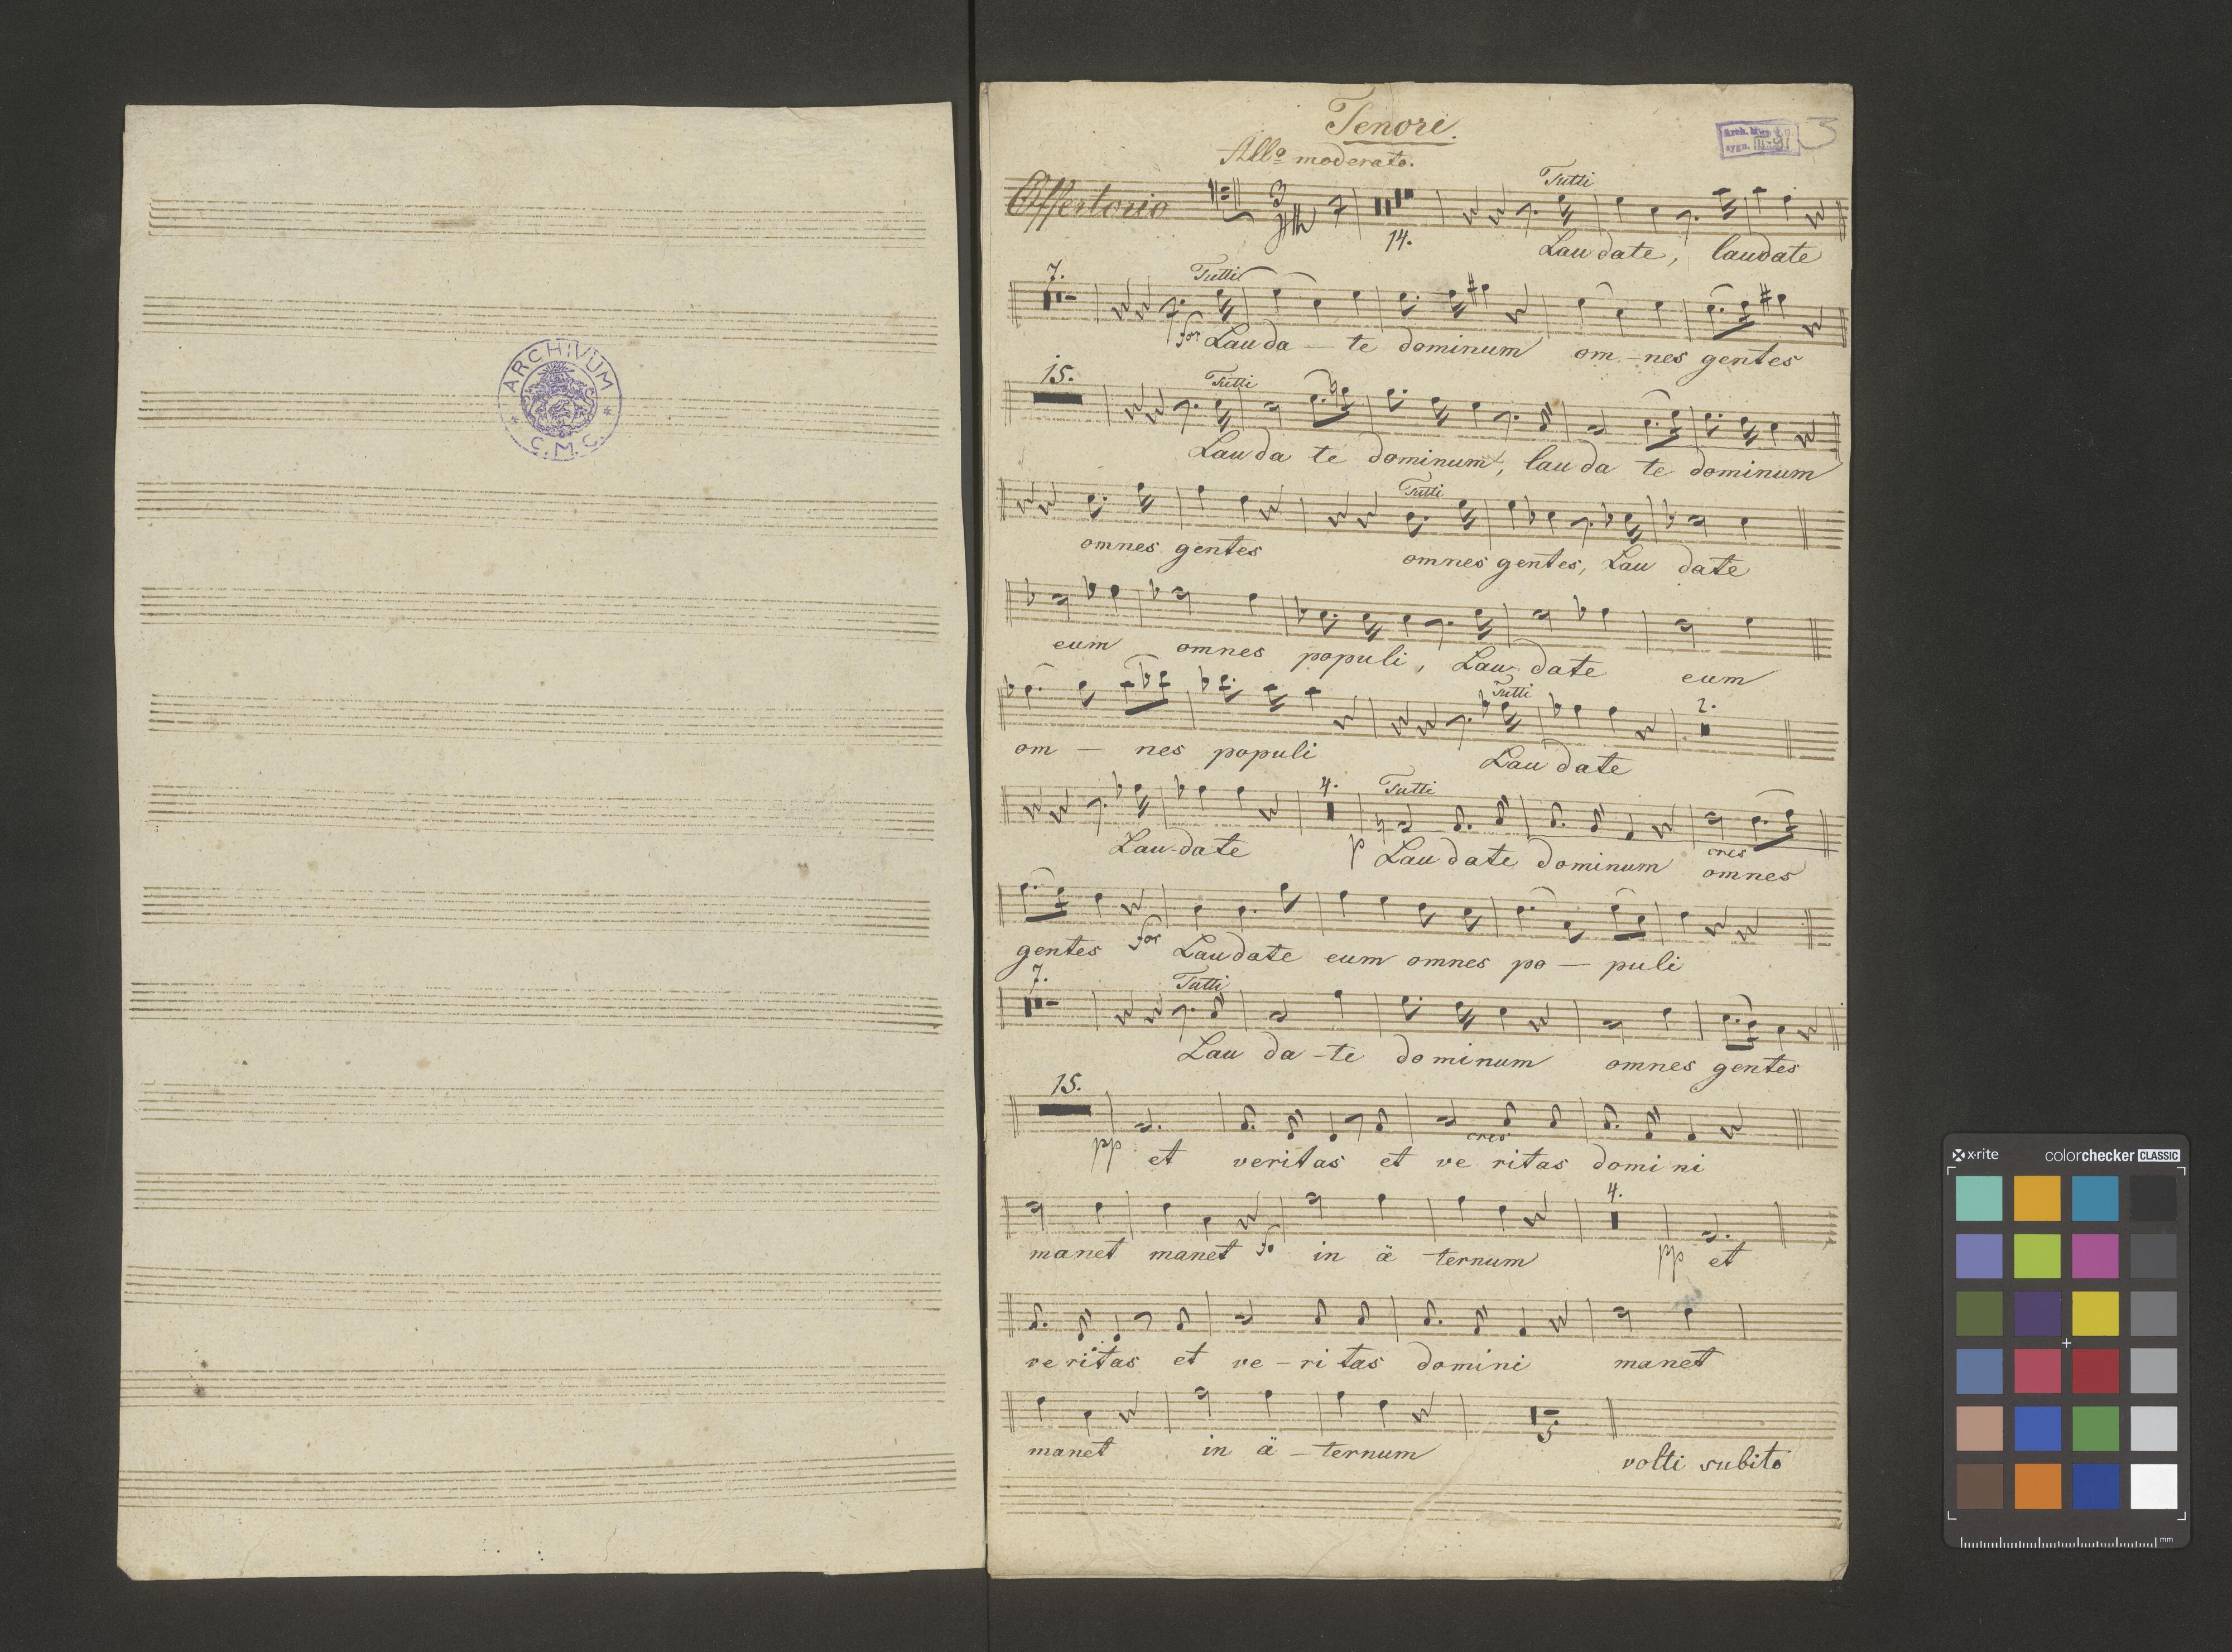 ARCHIVUM
* C.M.C. *
Tenore.
Allo moderato.
3
Offertorio
Tutti
14.
Laudate, laudate
7.
Tutti
for Lauda - te dominum om - nes gentes
15.
Tutti
Lauda te dominum, lauda te dominum
Tutti
omnes gentes omnes gentes, Lau date
eum omnes populi, Lau date eum
Tutti
2.
om - nes populi Lau date
4.
Tutti
Lau-date p Laudate dominum omnes
cres
gentes for Laudate eum omnes po - puli
7.
Tutti
Lau da-te dominum omnes gentes
15.
cres
pp et veritas et ve ritas domini
4.
manet manet fo in ä ternum pp et
veritas et ve-ri tas domini manet
5
manet in ä - ternum volti subito
x-rite colorchecker CLASSIC
mm